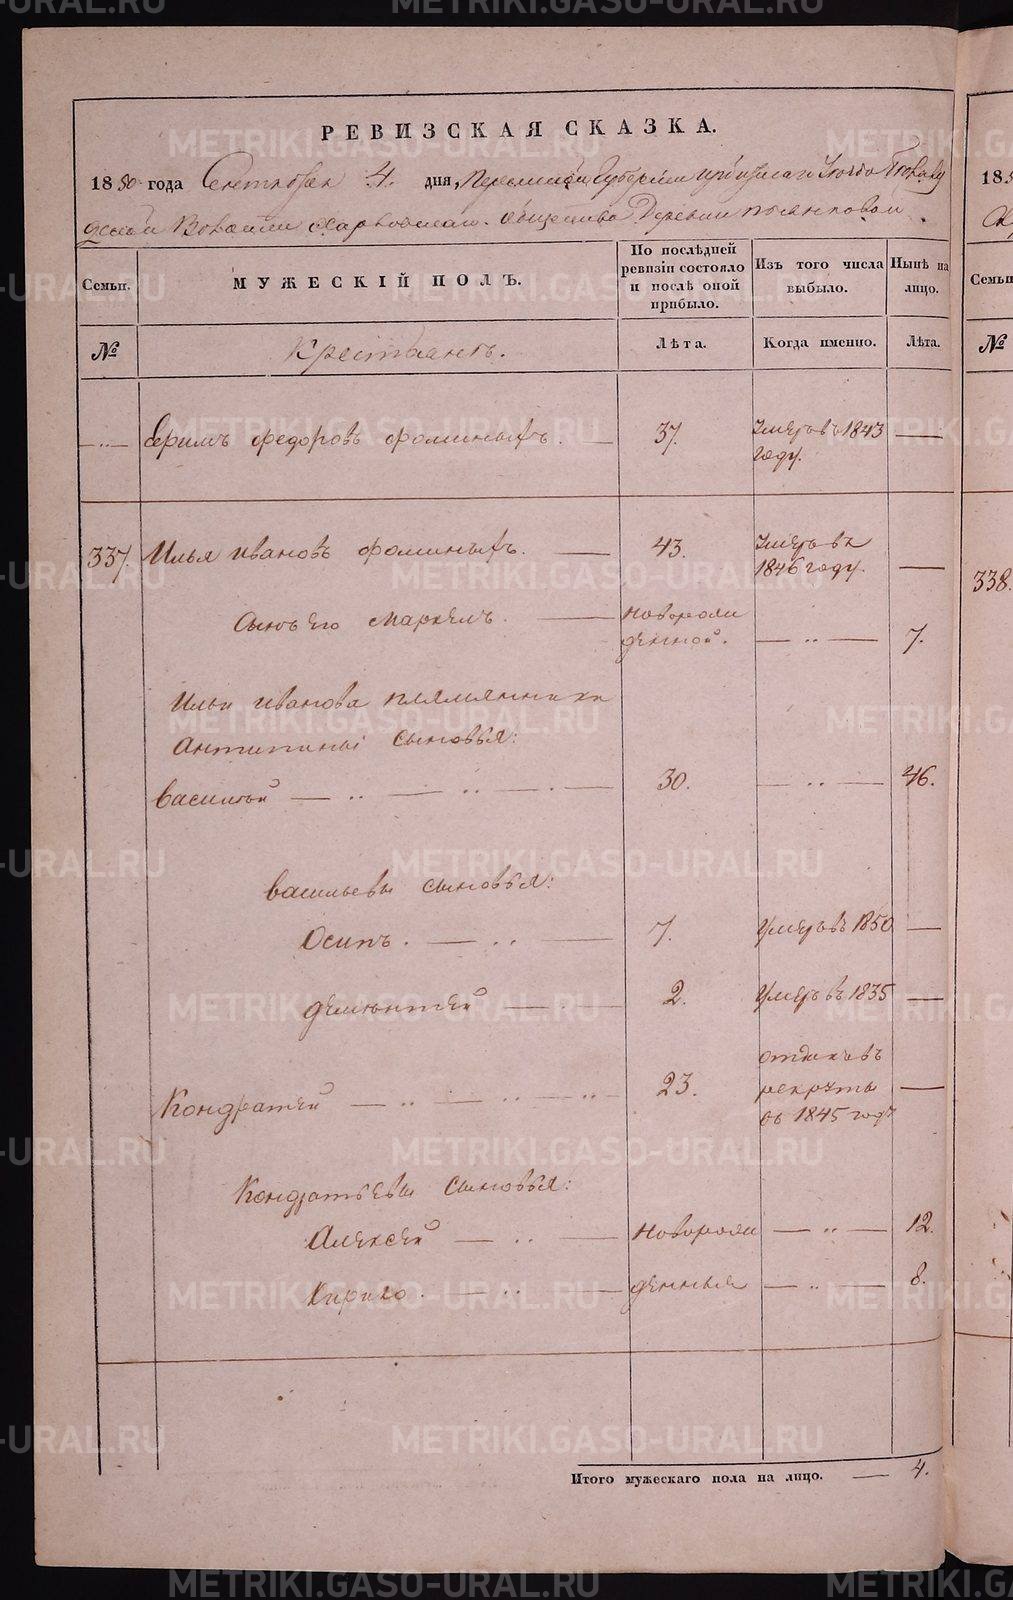 РЕВИЗСКАЯ СКАЗКА.
1850 года Сентября 4. дня, Пермской Губернии
общества Деревни
Семьи.
МУЖЕСКІЙ ПОЛЪ.
По послѣдней ревизіи состояло и послѣ оной прибыло.
Изъ того числа выбыло.
Нынѣ на лицо.
№
Крестьянъ.
Лѣта.
Когда именно.
Лѣта.
Ефимъ федоровъ фоминыхъ. 37. Умеръ въ 1843 году.
337. Илья ивановъ фоминыхъ. 43. Умеръ въ 1846 году.
Сынъ его Маркелъ. новорожденной. 7.
Ильи иванова племянники
Антипины сыновья:
василей 30. 46.
васильевы сыновья:
Осипъ. 7. Умеръ въ 1850
дементей 2. Умеръ въ 1835
Кондратей 23. отданъ въ рекруты въ 1845 году
Кондратьевы сыновья:
Алексей новорож 12.
Кирило. денныя 8.
Итого мужескаго пола на лицо. 4.
185
Семьи
№
338.
METRIKI.GASO-URAL.RU